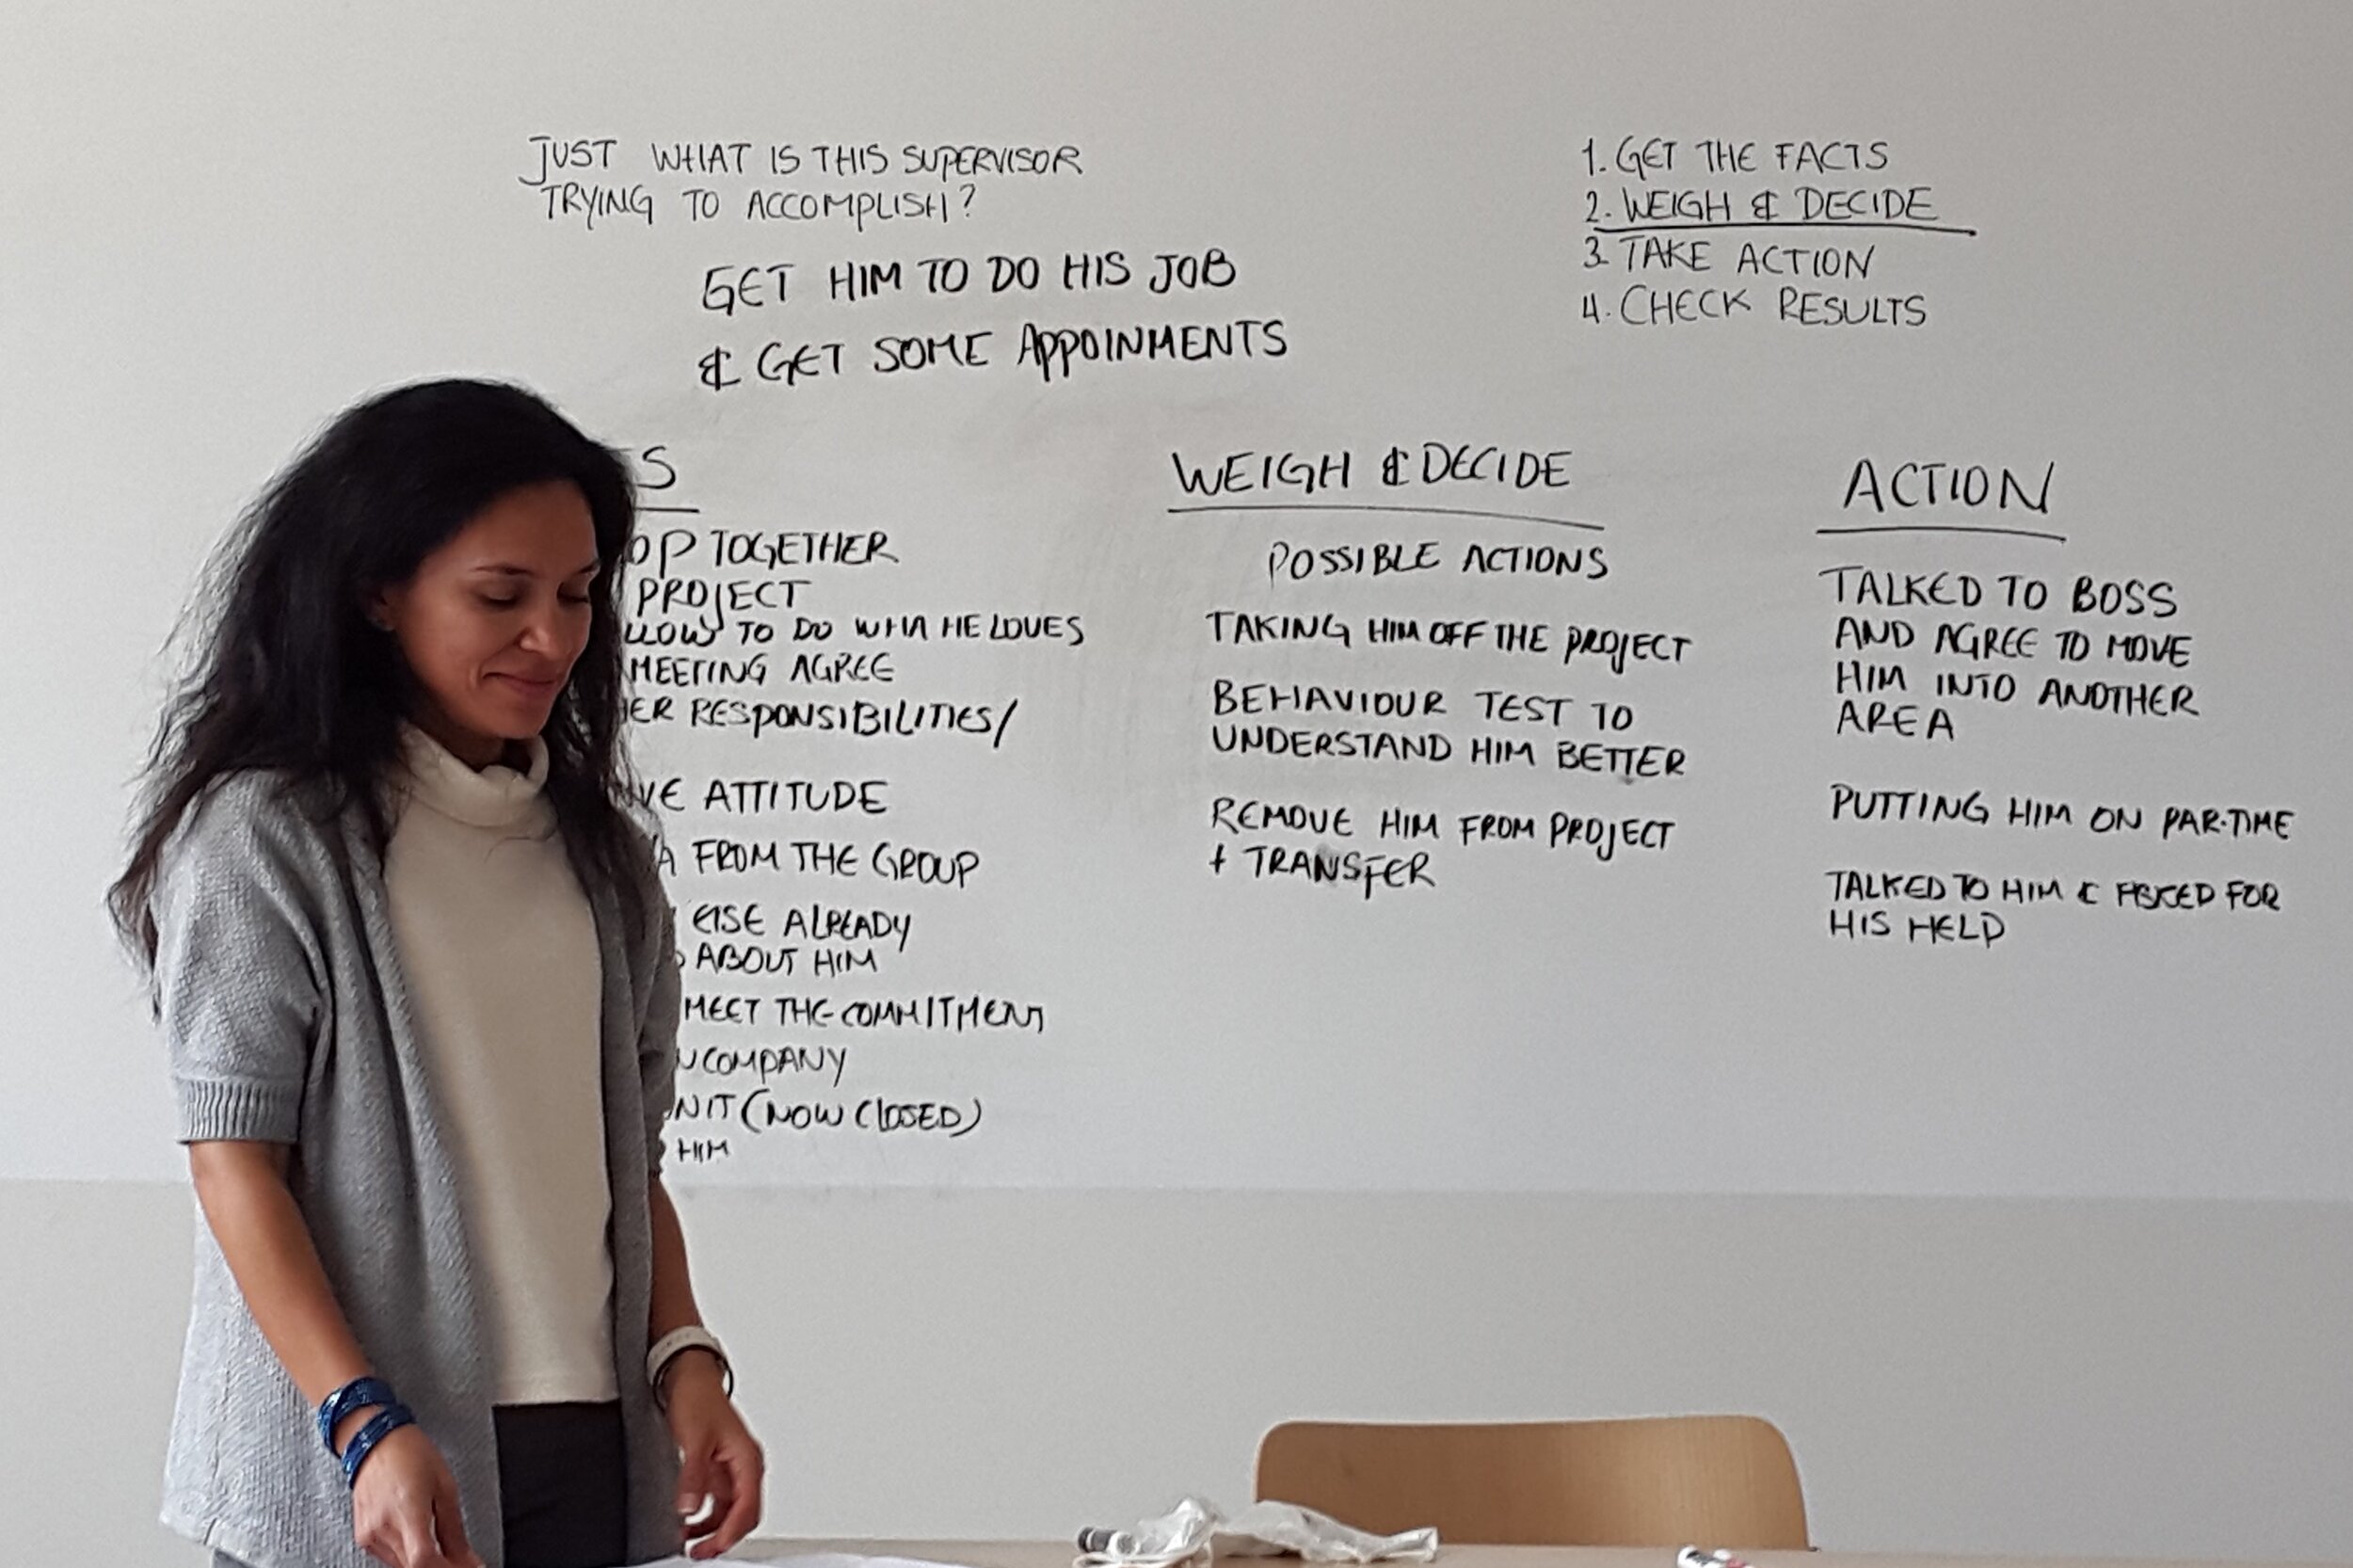 JUST WHAT IS THIS SUPERVISOR
TRYING TO ACCOMPLISH?
GET HIM TO DO HIS JOB
& GET SOME APPOINMENTS
1. GET THE FACTS
2. WEIGH & DECIDE
3. TAKE ACTION
4. CHECK RESULTS
TOGETHER
PROJECT
TO DO WHA HE LOVES
MEETING AGREE
RESPONSIBILITIES/
ATTITUDE
FROM THE GROUP
ELSE ALREADY
ABOUT HIM
MEET THE COMMITMENT
COMPANY
(NOW CLOSED)
HIM
WEIGH & DECIDE
POSSIBLE ACTIONS
TAKING HIM OFF THE PROJECT
BEHAVIOUR TEST TO
UNDERSTAND HIM BETTER
REMOVE HIM FROM PROJECT
+ TRANSFER
ACTION
TALKED TO BOSS
AND AGREE TO MOVE
HIM INTO ANOTHER
AREA
PUTTING HIM ON PAR-TIME
TALKED TO HIM & ASKED FOR
HIS HELP